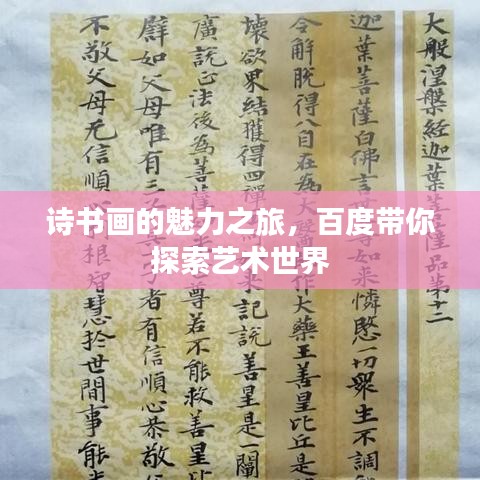 大般涅槃經迦葉菩薩品第十二
迦葉菩薩白佛言世尊如来憐愍一切眾生不調
令解脱得八自在為大大藥王善星比丘是
壞欲果結獲得四禪来記說善星是一闡
廣說正法後為菩薩尊若不能救善星
譬如父母唯有三子者有信順心恭敬
不敬父母无信順心根智慧於世間事能
诗书画的魅力之旅，百度带你
探索艺术世界